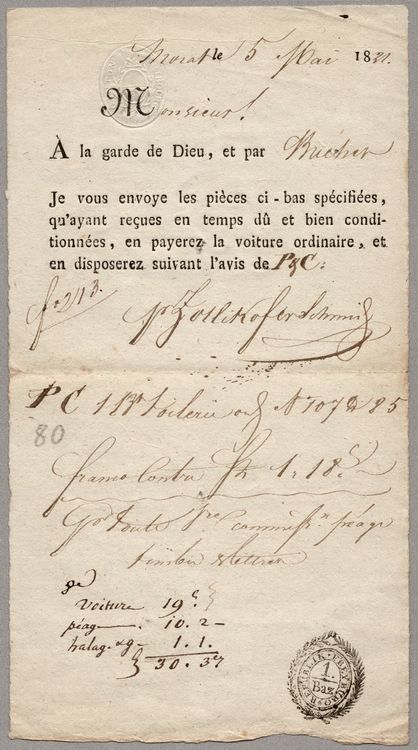 Morat le 5 Mai 1831.
Monsieur!
À la garde de Dieu, et par Bucher
Je vous envoye les pièces ci-bas spécifiées,
qu'ayant reçues en temps dû et bien condi-
tionnées, en payerez la voiture ordinaire, et
en disposerez suivant l'avis de P&C:
Zollikofer Schmid
PC 1 N° 107 85
80
franco contre 1. 18.
pr toute péage
timbre & lettres
voiture 19
péage 10. 2
halage 1. 1.
30. 3
REPUBLIK FREYBURG
1.
Baz.